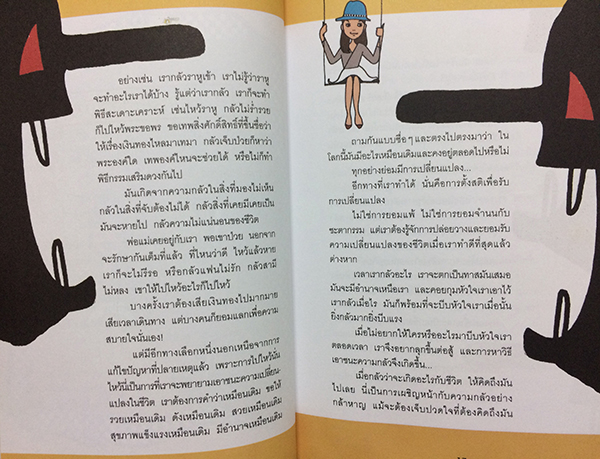 อย่างเช่น เรากลัวราหูเข้า เราไม่รู้ว่าราหู
จะทำอะไรเราได้บ้าง รู้แต่ว่าเรากลัว เราก็จะทำ
พิธีสะเดาะเคราะห์ เช่นไหว้ราหู กลัวไม่ร่ำรวย
ก็ไปไหว้พระขอพร ขอเทพสิ่งศักดิ์สิทธิ์ที่ขึ้นชื่อว่า
ให้เรื่องเงินทองไหลมาเทมา กลัวเจ็บป่วยก็หาว่า
พระองค์ใด เทพองค์ไหนจะช่วยได้ หรือไม่ก็ทำ
พิธีกรรมเสริมดวงกันไป
มันเกิดจากความกลัวในสิ่งที่มองไม่เห็น
กลัวในสิ่งที่จับต้องไม่ได้ กลัวสิ่งที่เคยมีเคยเป็น
มันจะหายไป กลัวความไม่แน่นอนของชีวิต
พ่อแม่เคยอยู่กับเรา พอเขาป่วย นอกจาก
จะรักษากันเต็มที่แล้ว ที่ไหนว่าดี ไหว้แล้วหาย
เราก็จะไม่รีรอ หรือกลัวแฟนไม่รัก กลัวสามี
ไม่หลง เขาให้ไปไหว้อะไรก็ไปไหว้
บางครั้งเราต้องเสียเงินทองไปมากมาย
เสียเวลาเดินทาง แต่บางคนก็ยอมแลกเพื่อความ
สบายใจนั่นเอง!
แต่มีอีกทางเลือกหนึ่งนอกเหนือจากการ
แก้ไขปัญหาที่ปลายเหตุแล้ว เพราะการไปไหว้นั่น
ไหว้นี่เป็นการที่เราจะพยายามเอาชนะความเปลี่ยน-
แปลงในชีวิต เราต้องการคำว่าเหมือนเดิม ขอให้
รวยเหมือนเดิม ดังเหมือนเดิม สวยเหมือนเดิม
สุขภาพแข็งแรงเหมือนเดิม มีอำนาจเหมือนเดิม
ถามกันแบบซื่อๆ และตรงไปตรงมาว่า ใน
โลกนี้มันมีอะไรเหมือนเดิมและคงอยู่ตลอดไปหรือไม่
ทุกอย่างย่อมมีการเปลี่ยนแปลง...
อีกทางที่เราทำได้ นั่นคือการตั้งสติเพื่อรับ
การเปลี่ยนแปลง
ไม่ใช่การยอมแพ้ ไม่ใช่การยอมจำนนกับ
ชะตากรรม แต่เราต้องรู้จักการปล่อยวางและยอมรับ
ความเปลี่ยนแปลงของชีวิตเมื่อเราทำดีที่สุดแล้ว
ต่างหาก
เวลาเรากลัวอะไร เราจะตกเป็นทาสมันเสมอ
มันจะมีอำนาจเหนือเรา และคอยกุมหัวใจเราเอาไว้
เรากลัวเมื่อไร มันก็พร้อมที่จะบีบหัวใจเราเมื่อนั้น
ยิ่งกลัวมากยิ่งบีบแรง
เมื่อไม่อยากให้ใครหรืออะไรมาบีบหัวใจเรา
ตลอดเวลา เราจึงอยากลุกขึ้นต่อสู้ และการหาวิธี
เอาชนะความกลัวจึงเกิดขึ้น...
เมื่อกลัวว่าจะเกิดอะไรกับชีวิต ให้คิดถึงมัน
ไปเลย นี่เป็นการเผชิญหน้ากับความกลัวอย่าง
กล้าหาญ แม้จะต้องเจ็บปวดใจที่ต้องคิดถึงมัน